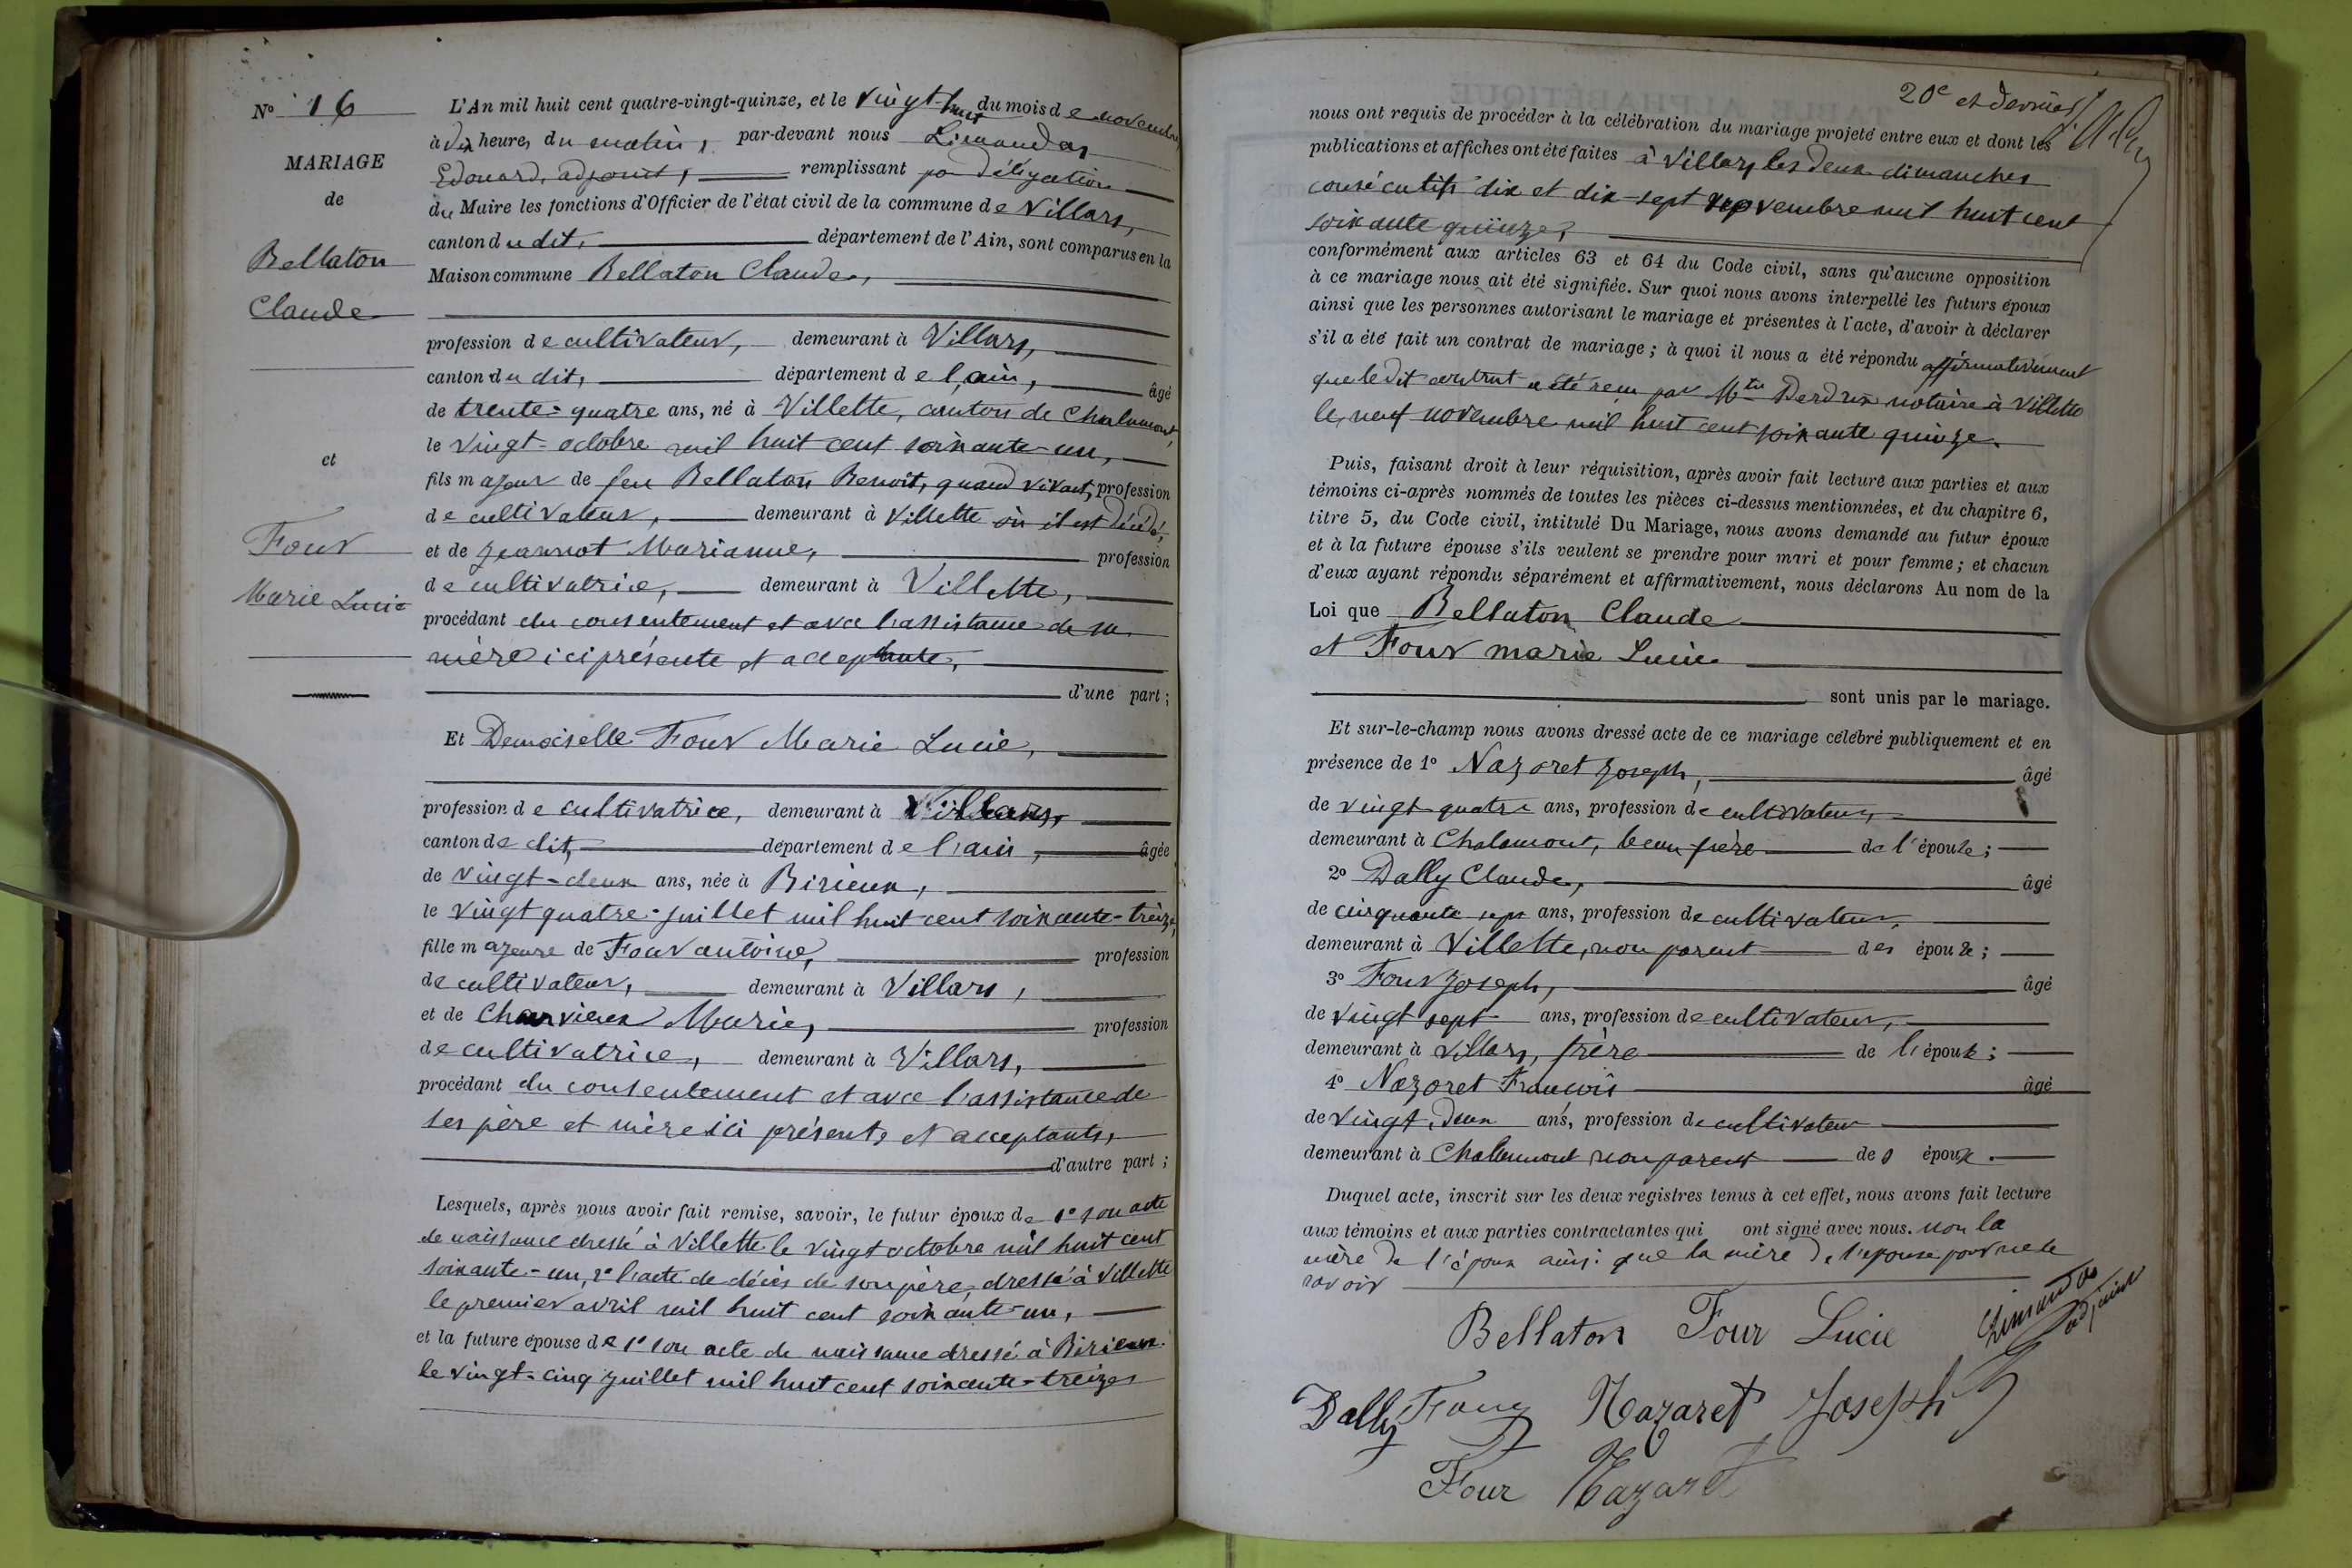 N° 16
MARIAGE
de
Bellaton
Claude
et
Four
Marie Lucie
L'An mil huit cent quatre-vingt-quinze, et le vingt-huit du mois de novembre
à dix heures du matin, par-devant nous Limandas
Edouard, adjoint, remplissant par délégation
du Maire les fonctions d'Officier de l'état civil de la commune de Villars,
canton dudit, département de l'Ain, sont comparus en la
Maison commune Bellaton Claude,
profession de cultivateur, demeurant à Villars,
canton dudit, département de l'ain, âgé
de trente-quatre ans, né à Villette, canton de Chalamont,
le vingt octobre mil huit cent soixante-un,
fils majeur de feu Bellaton Benoît, quand vivait, profession
de cultivateur, demeurant à Villette où il est décédé,
et de Jeannot Marianne, profession
de cultivatrice, demeurant à Villette,
procédant du consentement et avec l'assistance de sa
mère ici présente et acceptante,
d'une part;
Et Demoiselle Four Marie Lucie,
profession de cultivatrice, demeurant à Villars,
canton de dit, département de l'ain, âgée
de vingt-deux ans, née à Birieux,
le vingt quatre juillet mil huit cent soixante-treize,
fille majeure de Four antoine, profession
de cultivateur, demeurant à Villars,
et de Charvieux Marie, profession
de cultivatrice, demeurant à Villars,
procédant du consentement et avec l'assistance de
ses père et mère ici présents et acceptants,
d'autre part;
Lesquels, après nous avoir fait remise, savoir, le futur époux de 1° son acte
de naissance dressé à Villette le vingt octobre mil huit cent
soixante-un, 2° l'acte de décès de son père, dressé à Villette
le premier avril mil huit cent soixante-un,
et la future épouse de 1° son acte de naissance dressé à Birieux
le vingt-cinq juillet mil huit cent soixante-treize
20e et dernier
nous ont requis de procéder à la célébration du mariage projeté entre eux et dont les
publications et affiches ont été faites à Villars les deux dimanches
consécutifs dix et dix-sept novembre mil huit cent
soixante quinze,
conformément aux articles 63 et 64 du Code civil, sans qu'aucune opposition
à ce mariage nous ait été signifiée. Sur quoi nous avons interpellé les futurs époux
ainsi que les personnes autorisant le mariage et présentes à l'acte, d'avoir à déclarer
s'il a été fait un contrat de mariage; à quoi il nous a été répondu affirmativement
que ledit contrat a été reçu par Mtre Perdrix notaire à Villette
le neuf novembre mil huit cent soixante quinze.
Puis, faisant droit à leur réquisition, après avoir fait lecture aux parties et aux
témoins ci-après nommés de toutes les pièces ci-dessus mentionnées, et du chapitre 6,
titre 5, du Code civil, intitulé Du Mariage, nous avons demandé au futur époux
et à la future épouse s'ils veulent se prendre pour mari et pour femme; et chacun
d'eux ayant répondu séparément et affirmativement, nous déclarons Au nom de la
Loi que Bellaton Claude
et Four marie Lucie
sont unis par le mariage.
Et sur-le-champ nous avons dressé acte de ce mariage célébré publiquement et en
présence de 1° Nazaret Joseph, âgé
de vingt quatre ans, profession de cultivateur,
demeurant à Chalamont, beau-frère de l'épouse;
2° Dally Claude, âgé
de cinquante sept ans, profession de cultivateur,
demeurant à Villette, non parent des époux;
3° Four Joseph, âgé
de vingt sept ans, profession de cultivateur,
demeurant à Villars, frère de l'épouse;
4° Nazaret François âgé
de vingt deux ans, profession de cultivateur
demeurant à Chalamont non parent des époux.
Duquel acte, inscrit sur les deux registres tenus à cet effet, nous avons fait lecture
aux témoins et aux parties contractantes qui ont signé avec nous. non la
mère de l'époux ainsi que la mère de l'épouse pour ne le
savoir
Bellaton Four Lucie Limandas
adjoint
Dally Four Nazaret Joseph
Four Nazaret